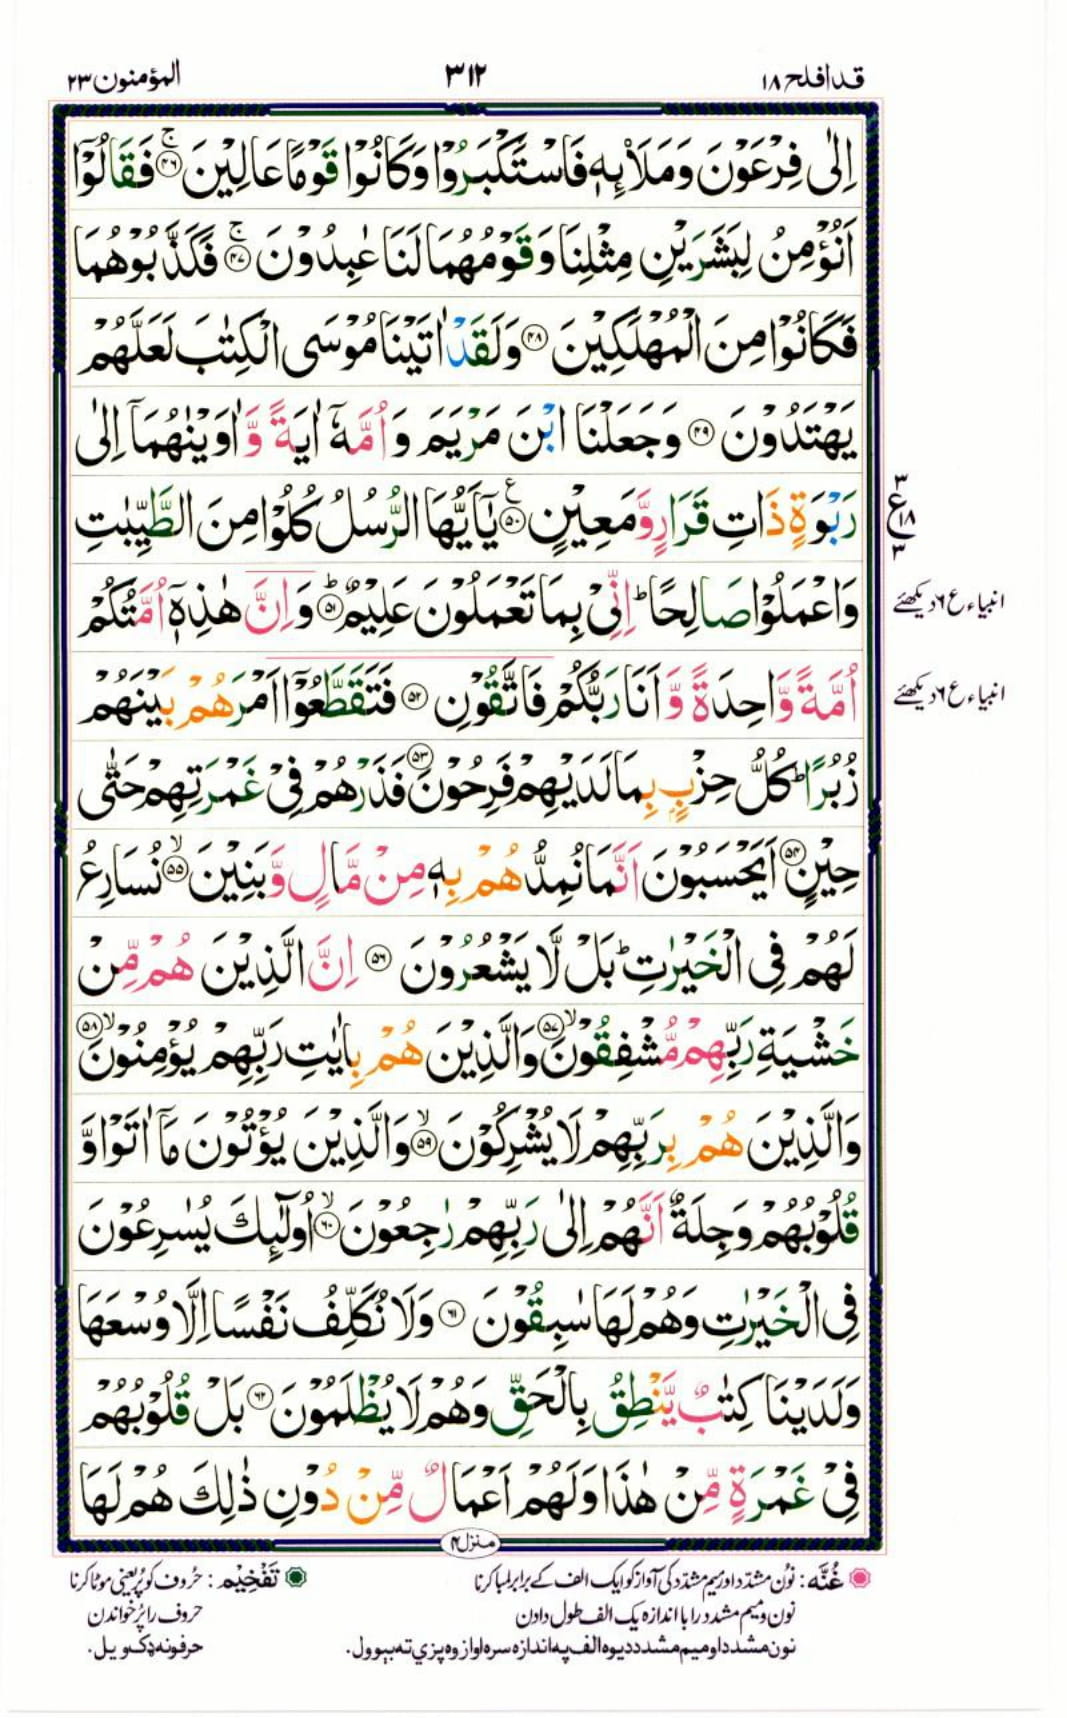 قد افلح ۱۸
۳۱۲
المؤمنون ۲۳
اِلٰى فِرْعَوْنَ وَمَلَا۟ئِهٖ فَاسْتَكْبَرُوْا وَكَانُوْا قَوْمًا عَالِيْنَ ۚ‏﴿۴۶﴾ فَقَالُوْٓا
اَنُؤْمِنُ لِبَشَرَيْنِ مِثْلِنَا وَقَوْمُهُمَا لَنَا عٰبِدُوْنَ ۚ‏﴿۴۷﴾ فَكَذَّبُوْهُمَا
فَكَانُوْا مِنَ الْمُهْلَكِيْنَ ﴿۴۸﴾ وَلَقَدْ اٰتَيْنَا مُوْسَى الْكِتٰبَ لَعَلَّهُمْ
يَهْتَدُوْنَ ﴿۴۹﴾ وَجَعَلْنَا ابْنَ مَرْيَمَ وَاُمَّهٗۤ اٰيَةً وَّاٰوَيْنٰهُمَاۤ اِلٰى
رَبْوَةٍ ذَاتِ قَرَارٍ وَّمَعِيْنٍ ﴿۵۰﴾ ع يٰۤاَيُّهَا الرُّسُلُ كُلُوْا مِنَ الطَّيِّبٰتِ
۳
ع
۱۸
۳
وَاعْمَلُوْا صَالِحًا ؕ اِنِّىْ بِمَا تَعْمَلُوْنَ عَلِيْمٌ ؕ‏﴿۵۱﴾ وَاِنَّ هٰذِهٖۤ اُمَّتُكُمْ
انبیاء ع ۶ دیکھئے
اُمَّةً وَّاحِدَةً وَّاَنَا رَبُّكُمْ فَاتَّقُوْنِ ﴿۵۲﴾ فَتَقَطَّعُوْۤا اَمْرَهُمْ بَيْنَهُمْ
انبیاء ع ۶ دیکھئے
زُبُرًا ؕ كُلُّ حِزْبٍۭ بِمَا لَدَيْهِمْ فَرِحُوْنَ ﴿۵۳﴾ فَذَرْهُمْ فِىْ غَمْرَتِهِمْ حَتّٰى
حِيْنٍ ﴿۵۴﴾ اَيَحْسَبُوْنَ اَنَّمَا نُمِدُّهُمْ بِهٖ مِنْ مَّالٍ وَّبَنِيْنَ ۙ‏﴿۵۵﴾ نُسَارِعُ
لَهُمْ فِى الْخَيْرٰتِ ؕ بَلْ لَّا يَشْعُرُوْنَ ﴿۵۶﴾ اِنَّ الَّذِيْنَ هُمْ مِّنْ
خَشْيَةِ رَبِّهِمْ مُّشْفِقُوْنَ ۙ‏﴿۵۷﴾ وَالَّذِيْنَ هُمْ بِاٰيٰتِ رَبِّهِمْ يُؤْمِنُوْنَ ۙ‏﴿۵۸﴾
وَالَّذِيْنَ هُمْ بِرَبِّهِمْ لَا يُشْرِكُوْنَ ۙ‏﴿۵۹﴾ وَالَّذِيْنَ يُؤْتُوْنَ مَاۤ اٰتَوْا وَّ
قُلُوْبُهُمْ وَجِلَةٌ اَنَّهُمْ اِلٰى رَبِّهِمْ رٰجِعُوْنَ ۙ‏﴿۶۰﴾ اُولٰٓئِكَ يُسٰرِعُوْنَ
فِى الْخَيْرٰتِ وَهُمْ لَهَا سٰبِقُوْنَ ﴿۶۱﴾ وَلَا نُكَلِّفُ نَفْسًا اِلَّا وُسْعَهَا
وَلَدَيْنَا كِتٰبٌ يَّنْطِقُ بِالْحَقِّ وَهُمْ لَا يُظْلَمُوْنَ ﴿۶۲﴾ بَلْ قُلُوْبُهُمْ
فِىْ غَمْرَةٍ مِّنْ هٰذَا وَلَهُمْ اَعْمَالٌ مِّنْ دُوْنِ ذٰلِكَ هُمْ لَهَا
منزل ۴
غُنّه : نون مشدد اور میم مشدد کی آواز کو ایک الف کے برابر لمبا کرنا
نون و میم مشدد را با اندازه یک الف طول دادن
نون مشدد او میم مشدد دیوه الف په اندازه سره اواز وه پزي ته ببوول.
تَفْخِیْم : حروف کو پُر یعنی موٹا کرنا
حروف را پُر خواندن
حرفونه ډک ویل.